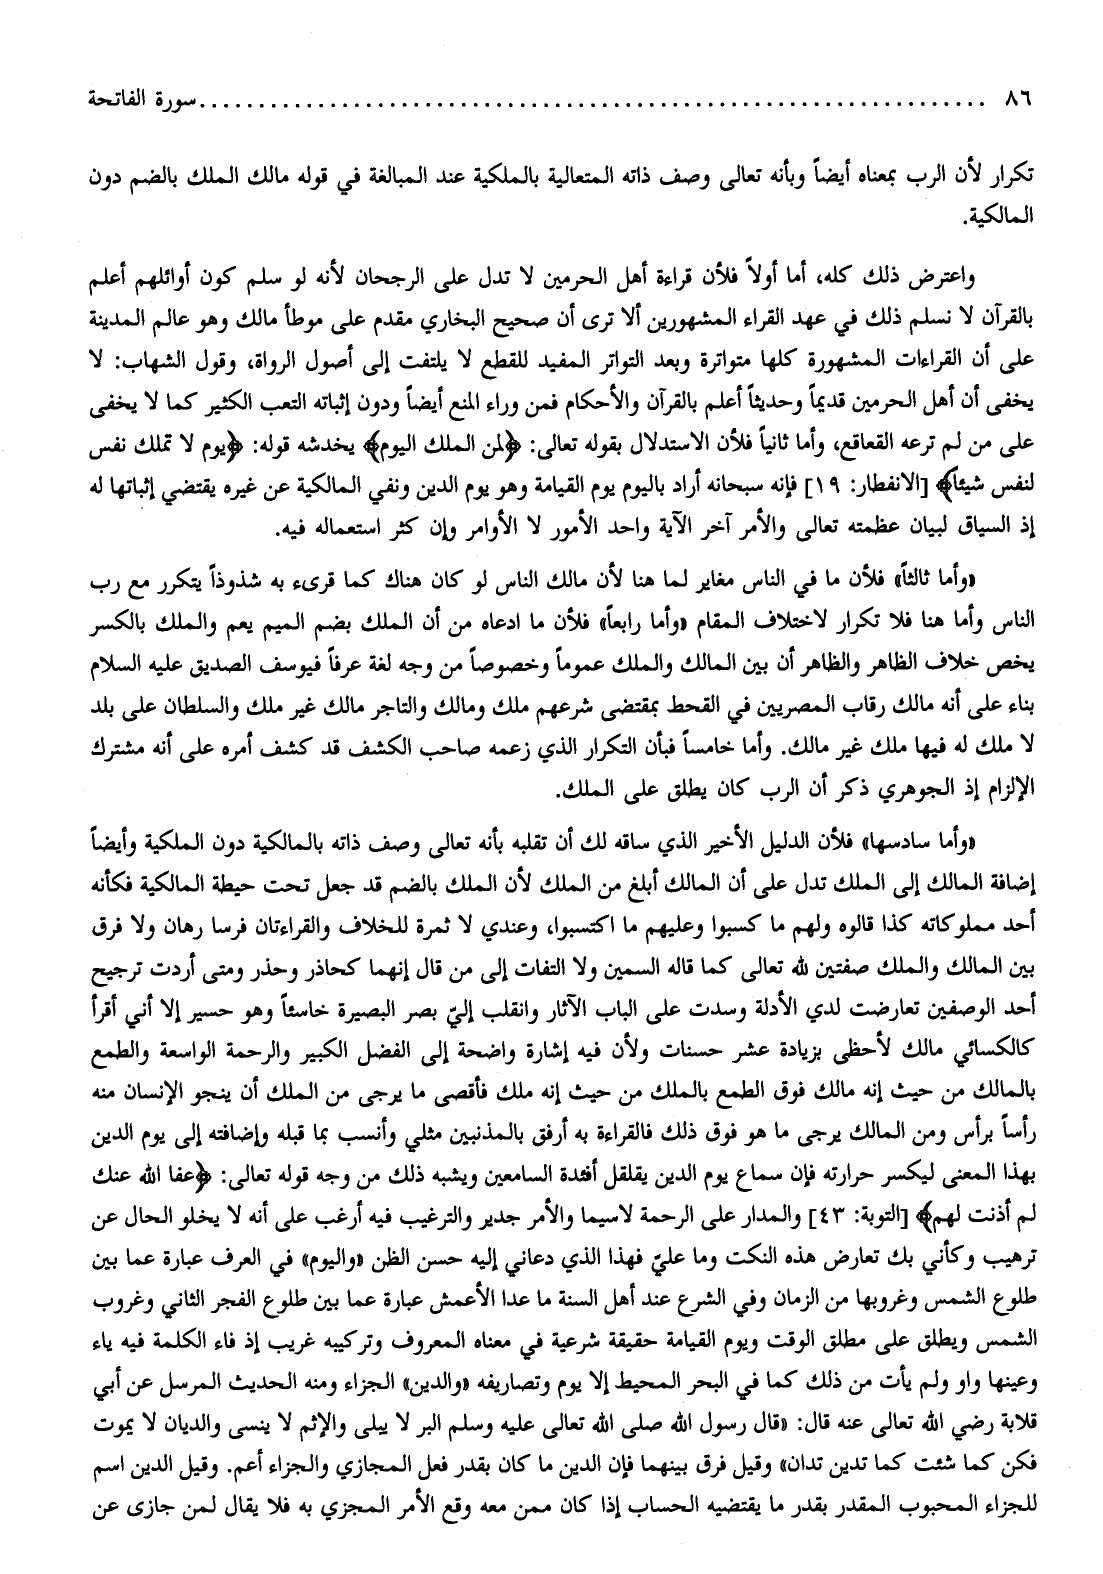 ٨٦ ........................................................ سورة الفاتحة
تكرار لأن الرب بمعناه أيضاً وبأنه تعالى وصف ذاته المتعالية بالملكية عند المبالغة في قوله مالك الملك بالضم دون
المالكية.
واعترض ذلك كله، أما أولاً فلأن قراءة أهل الحرمين لا تدل على الرجحان لأنه لو سلم كون أوائلهم أعلم
بالقرآن لا نسلم ذلك في عهد القراء المشهورين ألا ترى أن صحيح البخاري مقدم على موطأ مالك وهو عالم المدينة
على أن القراءات المشهورة كلها متواترة وبعد التواتر المفيد للقطع لا يلتفت إلى أصول الرواة، وقول الشهاب: لا
يخفى أن أهل الحرمين قديماً وحديثاً أعلم بالقرآن والأحكام فمن وراء المنع أيضاً ودون إثباته التعب الكثير كما لا يخفى
على من لم ترعه القعاقع، وأما ثانياً فلأن الاستدلال بقوله تعالى: ﴿لمن الملك اليوم﴾ يخدشه قوله: ﴿يوم لا تملك نفس
لنفس شيئاً﴾ [الانفطار: ١٩] فإنه سبحانه أراد باليوم يوم القيامة وهو يوم الدين ونفي المالكية عن غيره يقتضي إثباتها له
إذ السياق لبيان عظمته تعالى والأمر آخر الآية واحد الأمور لا الأوامر وإن كثر استعماله فيه.
«وأما ثالثاً» فلأن ما في الناس مغاير لما هنا لأن مالك الناس لو كان هناك كما قرىء به شذوذاً يتكرر مع رب
الناس وأما هنا فلا تكرار لاختلاف المقام «وأما رابعاً» فلأن ما ادعاه من أن الملك بضم الميم يعم والملك بالكسر
يخص خلاف الظاهر والظاهر أن بين المالك والملك عموماً وخصوصاً من وجه لغة عرفاً فيوسف الصديق عليه السلام
بناء على أنه مالك رقاب المصريين في القحط بمقتضى شرعهم ملك ومالك والتاجر مالك غير ملك والسلطان على بلد
لا ملك له فيها ملك غير مالك. وأما خامساً فبأن التكرار الذي زعمه صاحب الكشف قد كشف أمره على أنه مشترك
الإلزام إذ الجوهري ذكر أن الرب كان يطلق على الملك.
«وأما سادسها» فلأن الدليل الأخير الذي ساقه لك أن تقلبه بأنه تعالى وصف ذاته بالمالكية دون الملكية وأيضاً
إضافة المالك إلى الملك تدل على أن المالك أبلغ من الملك لأن الملك بالضم قد جعل تحت حيطة المالكية فكأنه
أحد مملوكاته كذا قالوه ولهم ما كسبوا وعليهم ما اكتسبوا، وعندي لا ثمرة للخلاف والقراءتان فرسا رهان ولا فرق
بين المالك والملك صفتين لله تعالى كما قاله السمين ولا التفات إلى من قال إنهما كحاذر وحذر ومتى أردت ترجيح
أحد الوصفين تعارضت لدي الأدلة وسدت على الباب الآثار وانقلب إليّ بصر البصيرة خاسئاً وهو حسير إلا أني أقرأ
كالكسائي مالك لأحظى بزيادة عشر حسنات ولأن فيه إشارة واضحة إلى الفضل الكبير والرحمة الواسعة والطمع
بالمالك من حيث إنه مالك فوق الطمع بالملك من حيث إنه ملك فأقصى ما يرجى من الملك أن ينجو الإنسان منه
رأساً برأس ومن المالك يرجى ما هو فوق ذلك فالقراءة به أرفق بالمذنبين مثلي وأنسب بما قبله وإضافته إلى يوم الدين
بهذا المعنى ليكسر حرارته فإن سماع يوم الدين يقلقل أفئدة السامعين ويشبه ذلك من وجه قوله تعالى: ﴿عفا الله عنك
لم أذنت لهم﴾ [التوبة: ٤٣] والمدار على الرحمة لاسيما والأمر جدير والترغيب فيه أرغب على أنه لا يخلو الحال عن
ترهيب وكأني بك تعارض هذه النكت وما عليّ فهذا الذي دعاني إليه حسن الظن «واليوم» في العرف عبارة عما بين
طلوع الشمس وغروبها من الزمان وفي الشرع عند أهل السنة ما عدا الأعمش عبارة عما بين طلوع الفجر الثاني وغروب
الشمس ويطلق على مطلق الوقت ويوم القيامة حقيقة شرعية في معناه المعروف وتركيبه غريب إذ فاء الكلمة فيه ياء
وعينها واو ولم يأت من ذلك كما في البحر المحيط إلا يوم وتصاريفه «والدين» الجزاء ومنه الحديث المرسل عن أبي
قلابة رضي الله تعالى عنه قال: «قال رسول الله صلى الله تعالى عليه وسلم البر لا يبلى والإثم لا ينسى والديان لا يموت
فكن كما شئت كما تدين تدان» وقيل فرق بينهما فإن الدين ما كان بقدر فعل المجازي والجزاء أعم. وقيل الدين اسم
للجزاء المحبوب المقدر بقدر ما يقتضيه الحساب إذا كان ممن معه وقع الأمر المجزي به فلا يقال لمن جازى عن